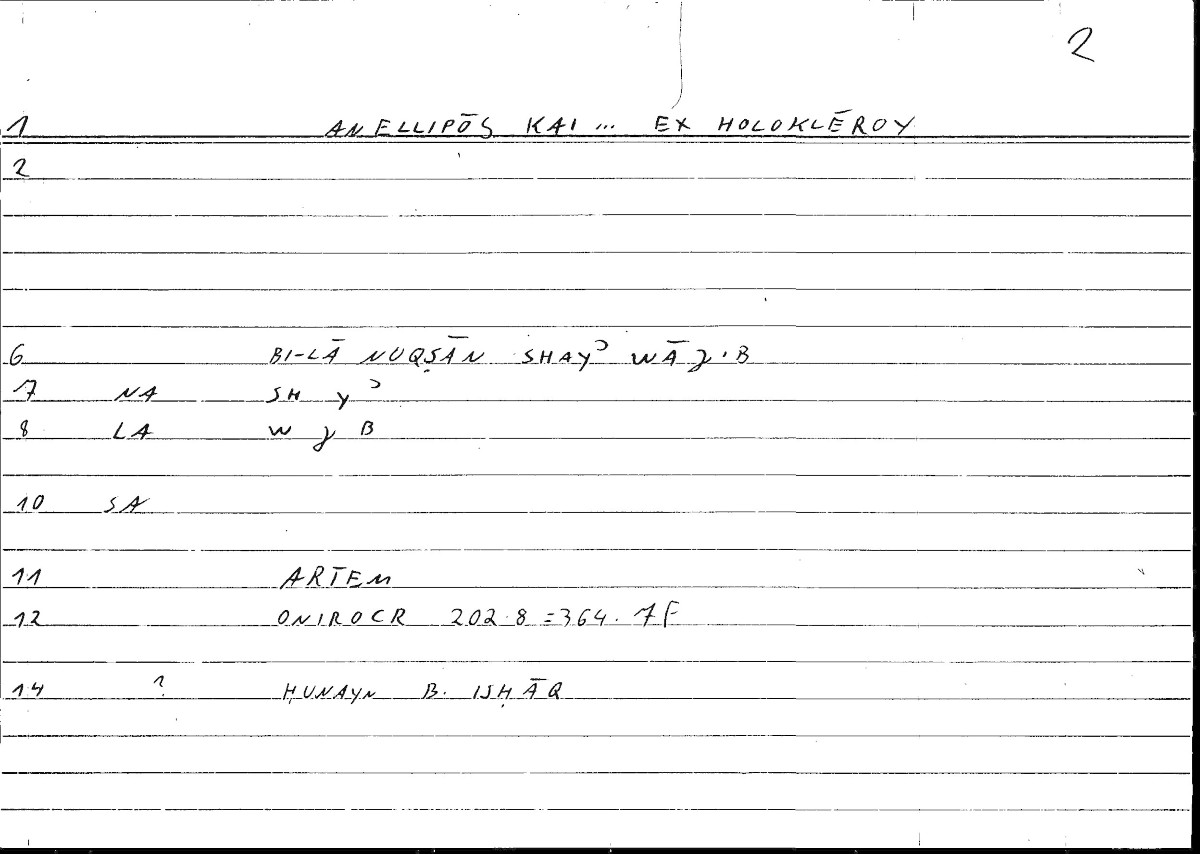 2
1 ANELLIPŌS KAI ... EX HOLOKLĒROY
2
6 BI-LĀ NUQṢĀN SHAYʾ WĀJIB
7 NA SH Y ʾ
8 LA W J B
10 SA
11 ARTEM
12 ONIROCR 202.8 = 364.7F
14 ? ḤUNAYN B. ISḤĀQ